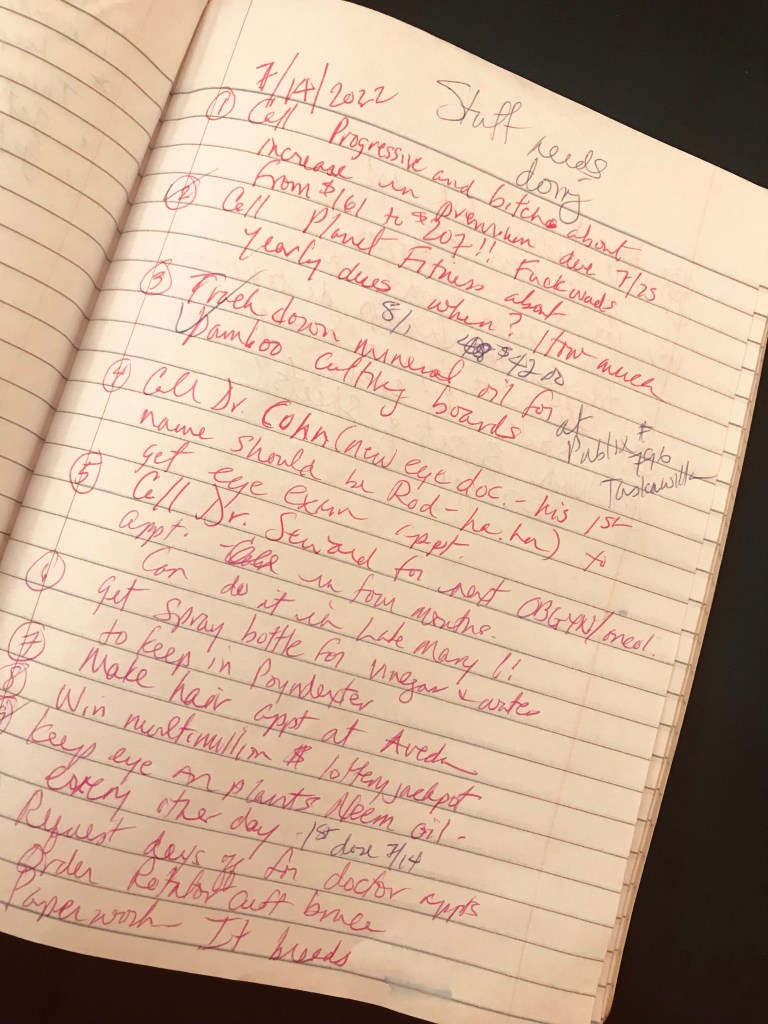 7/14/2022
Stuff needs
doing
① Call Progressive and bitch about
increase in premium due 7/25
from $161 to $207!! Fuckwads
② Call Planet Fitness about
yearly dues when? How much
8/1 $42.00
③ Track down mineral oil for
bamboo cutting boards
at
Publix $
7.96
④ Call Dr. Cohn (new eye doc. - his 1st
name should be Rod - ha.ha) to
get eye exam appt.
⑤ Call Dr. for next OBGYN/oncol.
appt. in four months.
Can do it in Lake Mary!!
⑥ get spray bottle for vinegar & water
to keep in Poyndexter
⑦ Make hair appt at Aveda
⑧ Win multimillion $ lottery jackpot
Keep eye on plants Neem oil -
every other day - 1st dose 7/14
Request days off for doctor appts
Order Rotator cuff brace
Paperwork It breeds